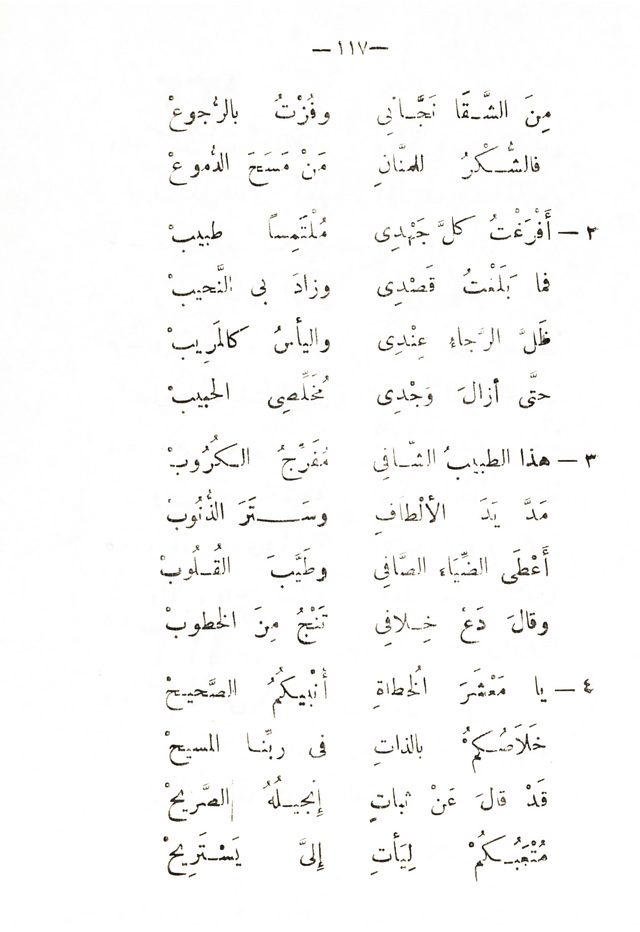 —١١٧—
مِنَ الشَّقَا نَجَّانِي وفُزْتُ بالرُّجوعْ
فالشُّكْرُ للمنَّانِ مَنْ مَسَحَ الدُّموعْ
٢ — أَفْرَغْتُ كلَّ جَهْدِى مُلْتَمِساً طبيبْ
فما بَلَغْتُ قَصْدِى وزادَ بى النَّحيبْ
ظَلَّ الرَّجاء عِنْدِى واليأسُ كالمَرِيبْ
حتَّى أزالَ وَجْدِى مُخَلِّصِى الحبيبْ
٣ — هذا الطبيبُ الشّافِي مُفَرِّجُ الكُرُوبْ
مَدَّ يَدَ الألْطافِ وسَتَرَ الذُّنُوبْ
أَعْطَى الضِّيَاء الصَّافِي وطَيَّبَ القُلُوبْ
وقالَ دَعْ خِلافِي تَنْجُ مِنَ الخطوبْ
٤ — يا مَعْشَرَ الخُطاةِ أُنْبِيكُمُ الصَّحيحْ
خَلَاصُكمْ بالذاتِ فى ربِّنا المسيحْ
قَدْ قالَ عَنْ ثباتٍ إنجيلُهُ الصَّريحْ
مُتْعَبُكُمْ لِيَأتِ إلىَّ يَسْتَرِيحْ